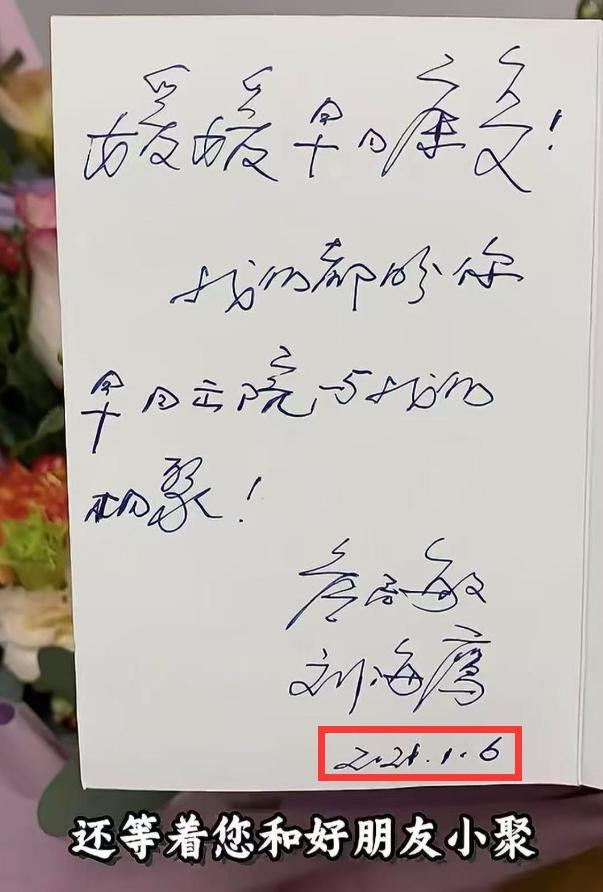 媛媛早日康复！
我们都盼你
早日出院与我们
相聚！
詹启敏
刘海鹰
2021.1.6
还等着您和好朋友小聚